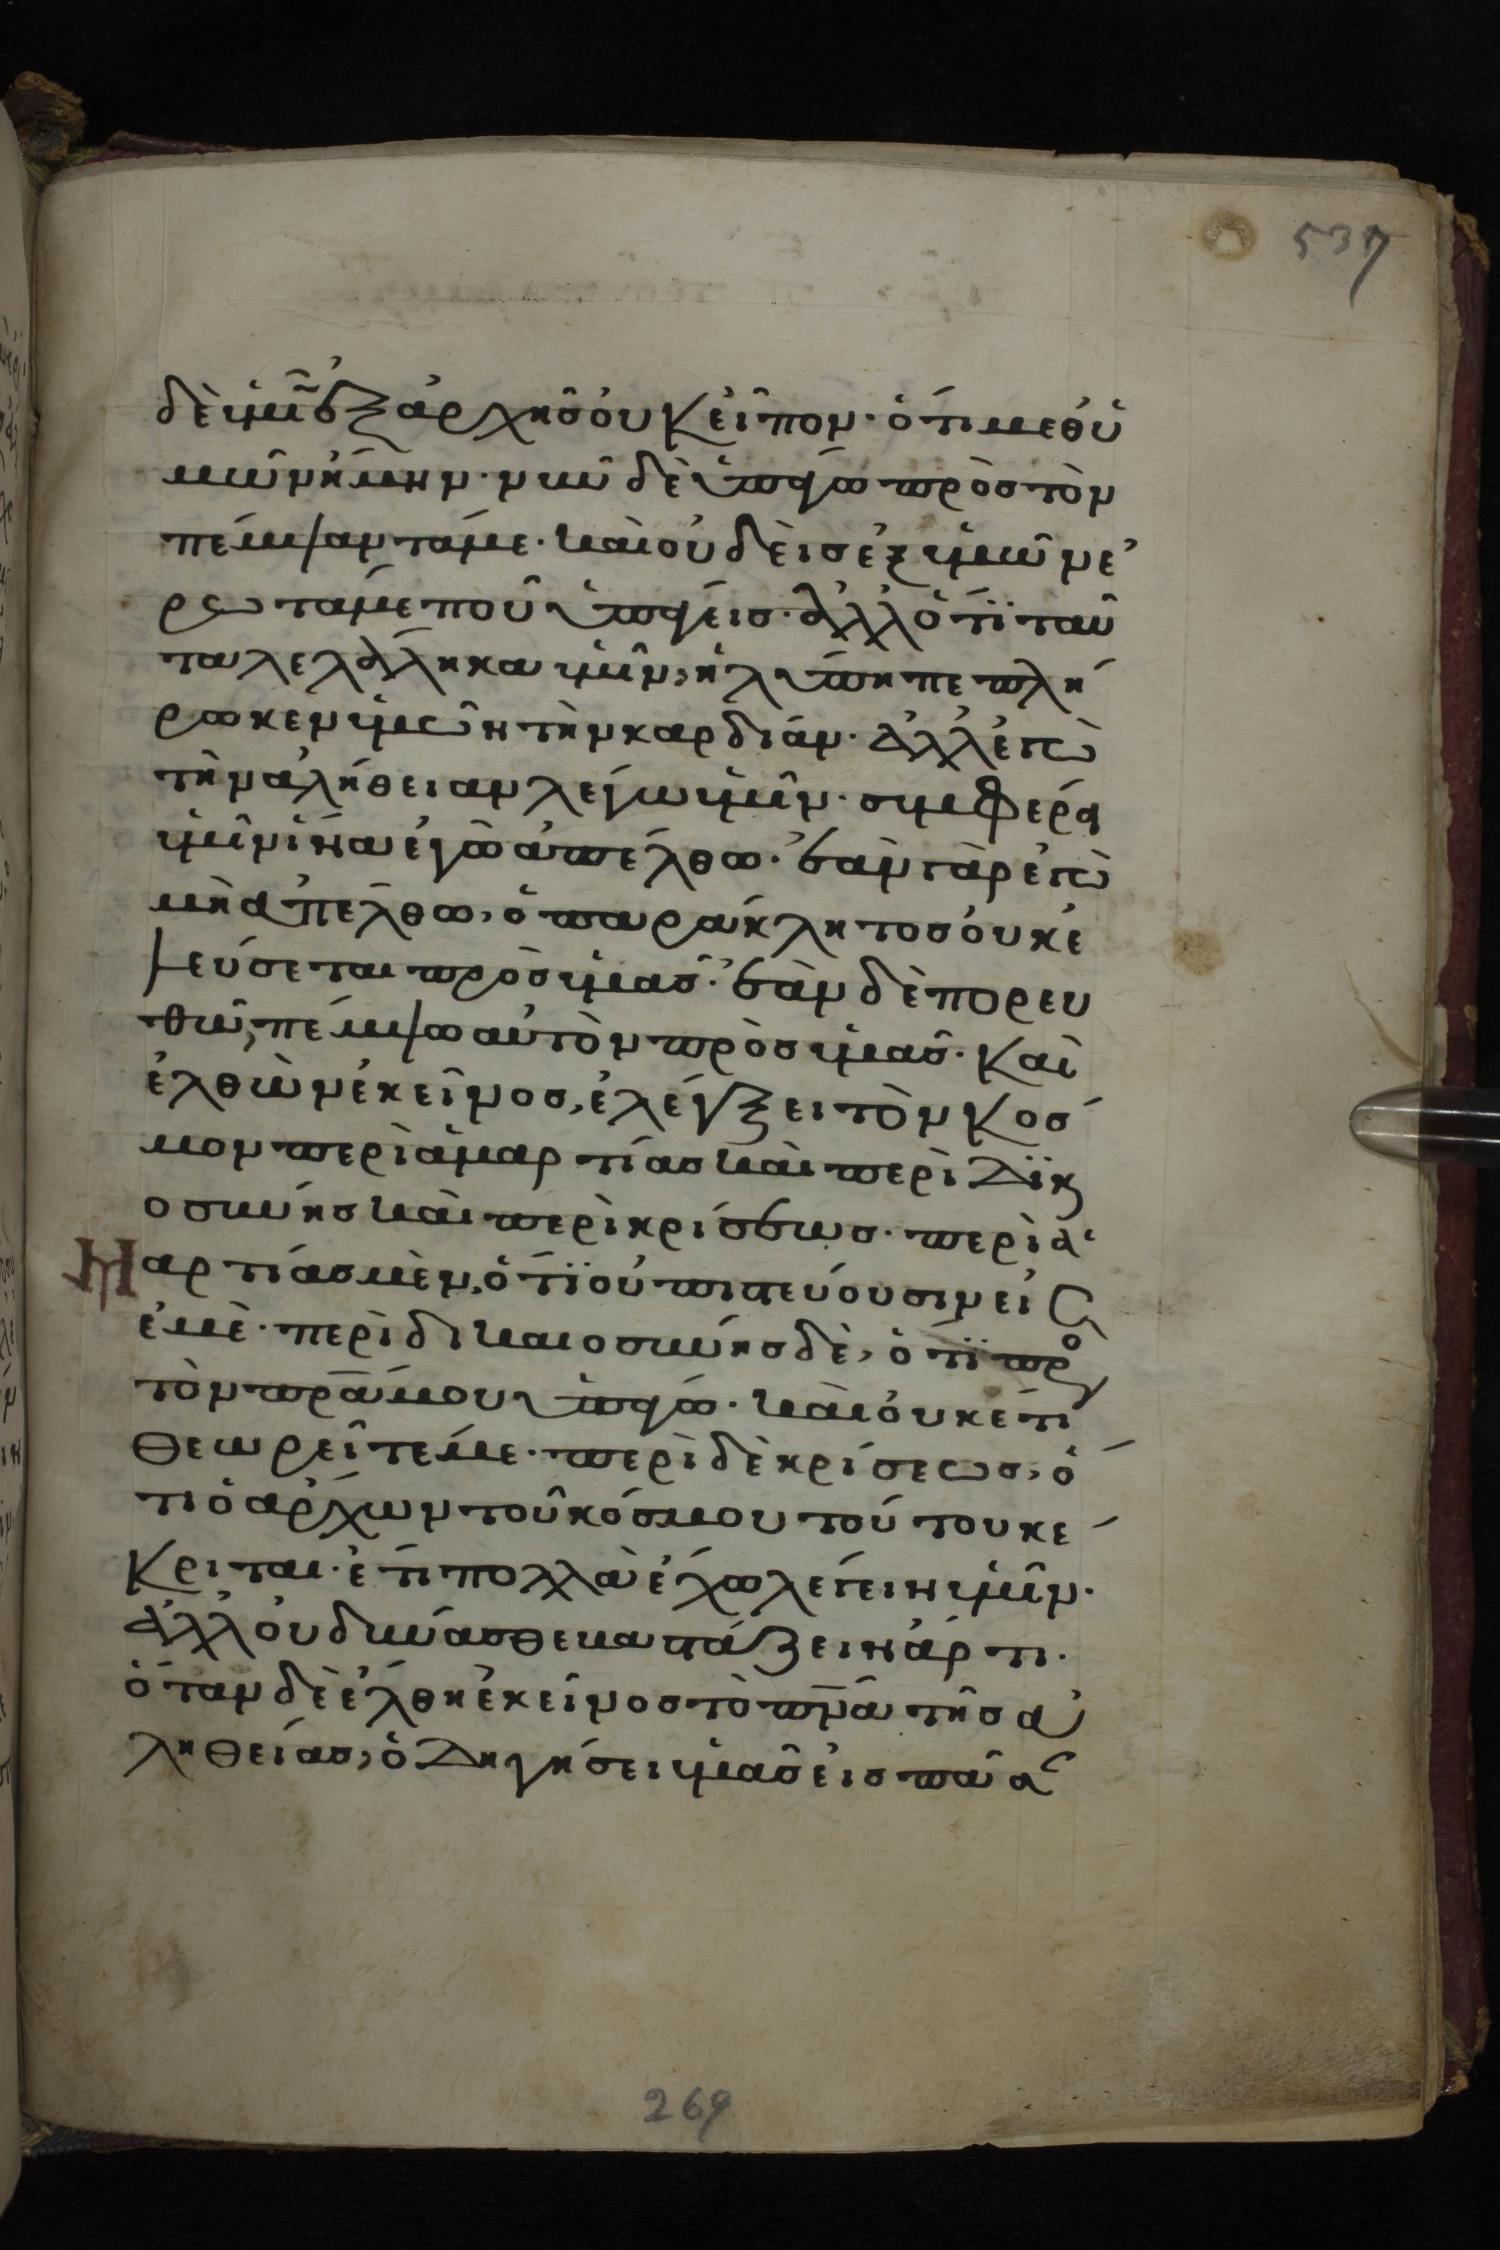 537
δὲ ὑμῖν ἐξ ἀρχῆς οὐκ εἶπον· ὅτι μεθ ὑ
μῶν ἤμην· νῦν δὲ ὑπάγω πρὸς τὸν
πέμψαντά με· καὶ οὐδεὶς ἐξ ὑμῶν ἐ
ρωτᾷ με ποῦ ὑπάγεις· ἀλλ ὅτι ταῦ
τα λελάληκα ὑμῖν, ἡ λύπη πεπλή
ρωκεν ὑμῶν τὴν καρδίαν· ἀλλ ἐγὼ
τὴν ἀλήθειαν λέγω ὑμῖν· συμφέρει
ὑμῖν ἵνα ἐγὼ ἀπέλθω· ἐὰν γὰρ ἐγὼ
μὴ ἀπέλθω, ὁ παράκλητος οὐκ ἐ
λεύσεται πρὸς ὑμᾶς· ἐὰν δὲ πορευ
θῶ, πέμψω αὐτὸν πρὸς ὑμᾶς· καὶ
ἐλθὼν ἐκεῖνος, ἐλέγξει τὸν κόσ
μον περὶ ἁμαρτίας καὶ περὶ δικαι
οσύνης καὶ περὶ κρίσεως· περὶ ἁ
μαρτίας μὲν, ὅτι οὐ πιστεύουσιν εἰς
ἐμὲ· περὶ δικαιοσύνης δὲ, ὅτι πρὸς
τὸν πρ̅α μου ὑπάγω· καὶ οὐκέτι
θεωρεῖτέ με· περὶ δὲ κρίσεως, ὅ
τι ὁ ἄρχων τοῦ κόσμου τούτου κέ
κριται· ἔτι πολλὰ ἔχω λέγειν ὑμῖν·
ἀλλ οὐ δύνασθε βαστάζειν ἄρτι·
ὅταν δὲ ἔλθη ἐκεῖνος τὸ πν̅α τῆς ἀ
ληθείας, ὁδηγήσει ὑμᾶς εἰς πᾶσαν
269